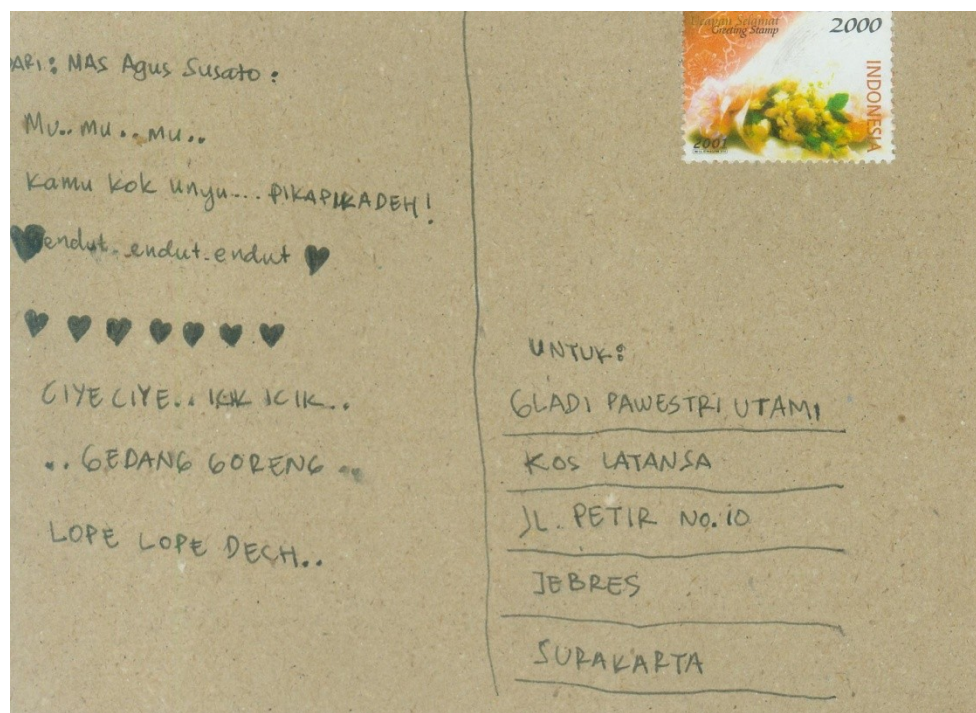 DARI: MAS Agus Susato:
Mu.. mu.. mu..
Kamu kok unyu... PIKAPIKADEH!
endut..endut.endut
CIYE CIYE.. ICIK ICIK..
.. GEDANG GORENG ..
LOPE LOPE DECH..
Ucapan Selamat
Greeting Stamp
2000
INDONESIA
2001
UNTUK:
GLADI PAWESTRI UTAMI
KOS LATANSA
JL. PETIR No.10
JEBRES
SURAKARTA